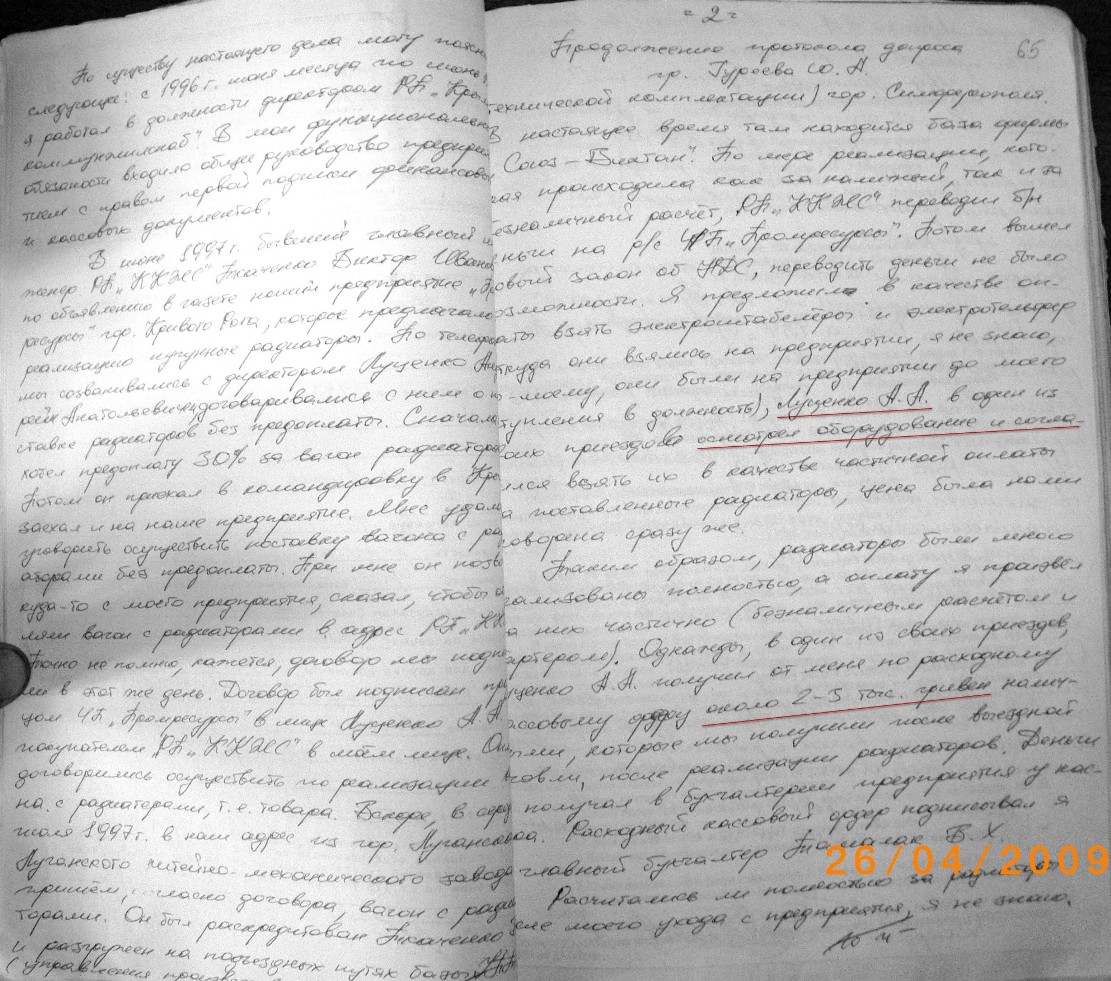 По существу настоящего дела могу поясн
следующее: с 1996 г. июня месяца по июнь
я работал в должности директором РП „Крым
коммунжилснаб". В мои функциональн
обязаности входило общее руководство предприя
тием с правом первой подписи финансовы
и кассовых документов.
В июне 1997 г. бывший главный и
женер РП „ККЖС" Ткаченко Виктор Иван
по объявлению в газете нашёл предприятие „П
ресурсы" гор. Кривого Рога, которое предлагало
реализацию чугунные радиаторы. По телеф
мы созванивались с директором Луценко Ан
реем Анатольевичем договаривались с ним о п
ставке радиаторов без предоплаты. Сначал
хотел предоплату 30% за вагон радиаторо
Потом он приехал в командировку в Кры
заехал и на наше предприятие. Мне удал
уговорить осуществить поставку вагона с ра
аторами без предоплаты. При мне он позв
куда-то с моего предприятия, сказал, чтобы о
ляли вагон с радиаторами в адрес РП „КК
Точно не помню, кажется, договор мы подпи
ли в этот же день. Договор был подписан пр
цом ЧП „Промресурсы" в лице Луценко А.А.
покупателем РП „ККЖС" в моём лице. Опл
договорились осуществить по реализации
на с радиаторами, т.е. товара. Вскоре, в сер
июля 1997 г. в наш адрес из гор. Луганска
Луганского литейно-механического завода
пришёл, согласно договора, вагон с радиа
торами. Он был раскредитован Ткаченко
и разгружен на подъездных путях базы
(управления произв
- 2 -
65
Продолжение протокола допроса
гр. Гуреева Ю.А.
технической комплектации) гор. Симферополя.
В настоящее время там находится база фирмы
Союз-Виктан". По мере реализации, кото-
рая происходила как за наличный, так и за
езналичный расчёт, РП „ККЖС" переводил б/н
еньги на р/с ЧП „Промресурсы". Потом вышел
овый закон об НДС, переводить деньги не было
озможности. Я предложил в качестве оп-
латы взять электроштабелёры и электротельфер
ткуда они взялись на предприятии, я не знаю,
-моему, они были на предприятии до моего
тупления в должность), Луценко А.А. в один из
оих приездов осмотрел оборудование и согла-
ился взять их в качестве частичной оплаты
а поставленные радиаторы, цена была нами
оворена сразу же.
Таким образом, радиаторы были много
ализованы полностью, а оплату я произвёл
а них частично (безналичным расчётом и
артером). Однажды, в один из своих приездов,
уценко А.А. получил от меня по расходному
ассовому ордеру около 2-3 тыс. гривен налич-
ыми, которые мы получили после выездной
говли, после реализации радиаторов. Деньги
получал в бухгалтерии предприятия у кас-
а. Расходный кассовый ордер подписывал я
главный бухгалтер Тамалак В.Х.
Расчитались ли полностью за радиаторы
сле моего ухода с предприятия, я не знаю.
26/04/2009